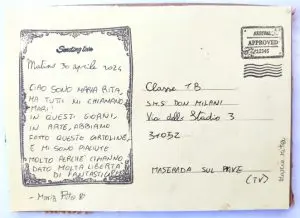 Sending love
30 aprile 2024
CIAO SONO MARIA RITA,
MA TUTTI MI CHIAMANO
MARI!
IN QUESTI GIORNI,
IN ARTE, ABBIAMO
FATTO QUESTE CARTOLINE,
E MI SONO PIACIUTE
MOLTO PERCHÉ CI HANNO
DATO MOLTA LIBERTÀ
DI FANTASTICARE
-MARIA RITA
ARRIVAL
APPROVED
12345
Classe 1B
S.M.S DON MILANI
Via dello Stadio 3
31052
MASERADA SUL PIAVE
(TV)